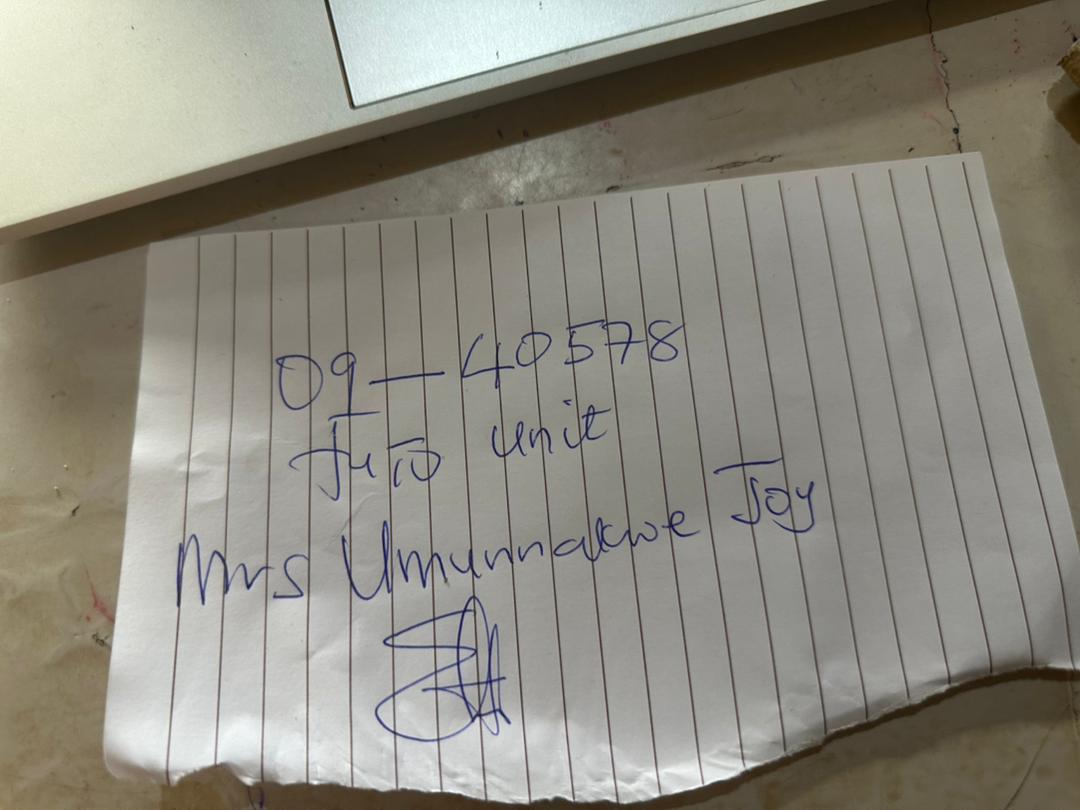 09—40578
unit
Mrs Umunnakwe Joy